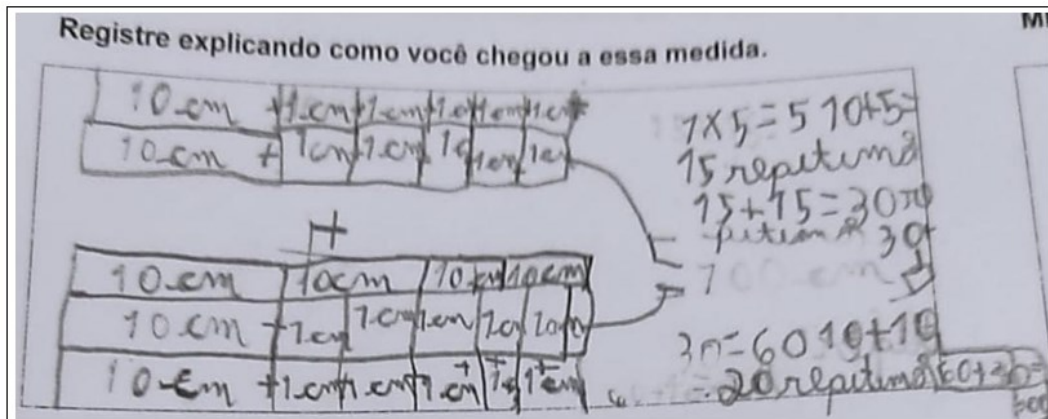 Registre explicando como você chegou a essa medida.
10 cm +1 cm+1 cm+1c+1cm+1c+
10 cm + 1cm+1 cm 1c 1cm 1c
+
10 cm 10cm 10cm 10cm
10 cm +1cm 1cm 1cm 1c
10 cm +1 cm+1 cm+1 cm +1c +1 cm
1x5=5 10+5=
15 repetimos
15+15=30 re
petimos 30+
100 cm
30=60 10+10
=20 repetimos 60+